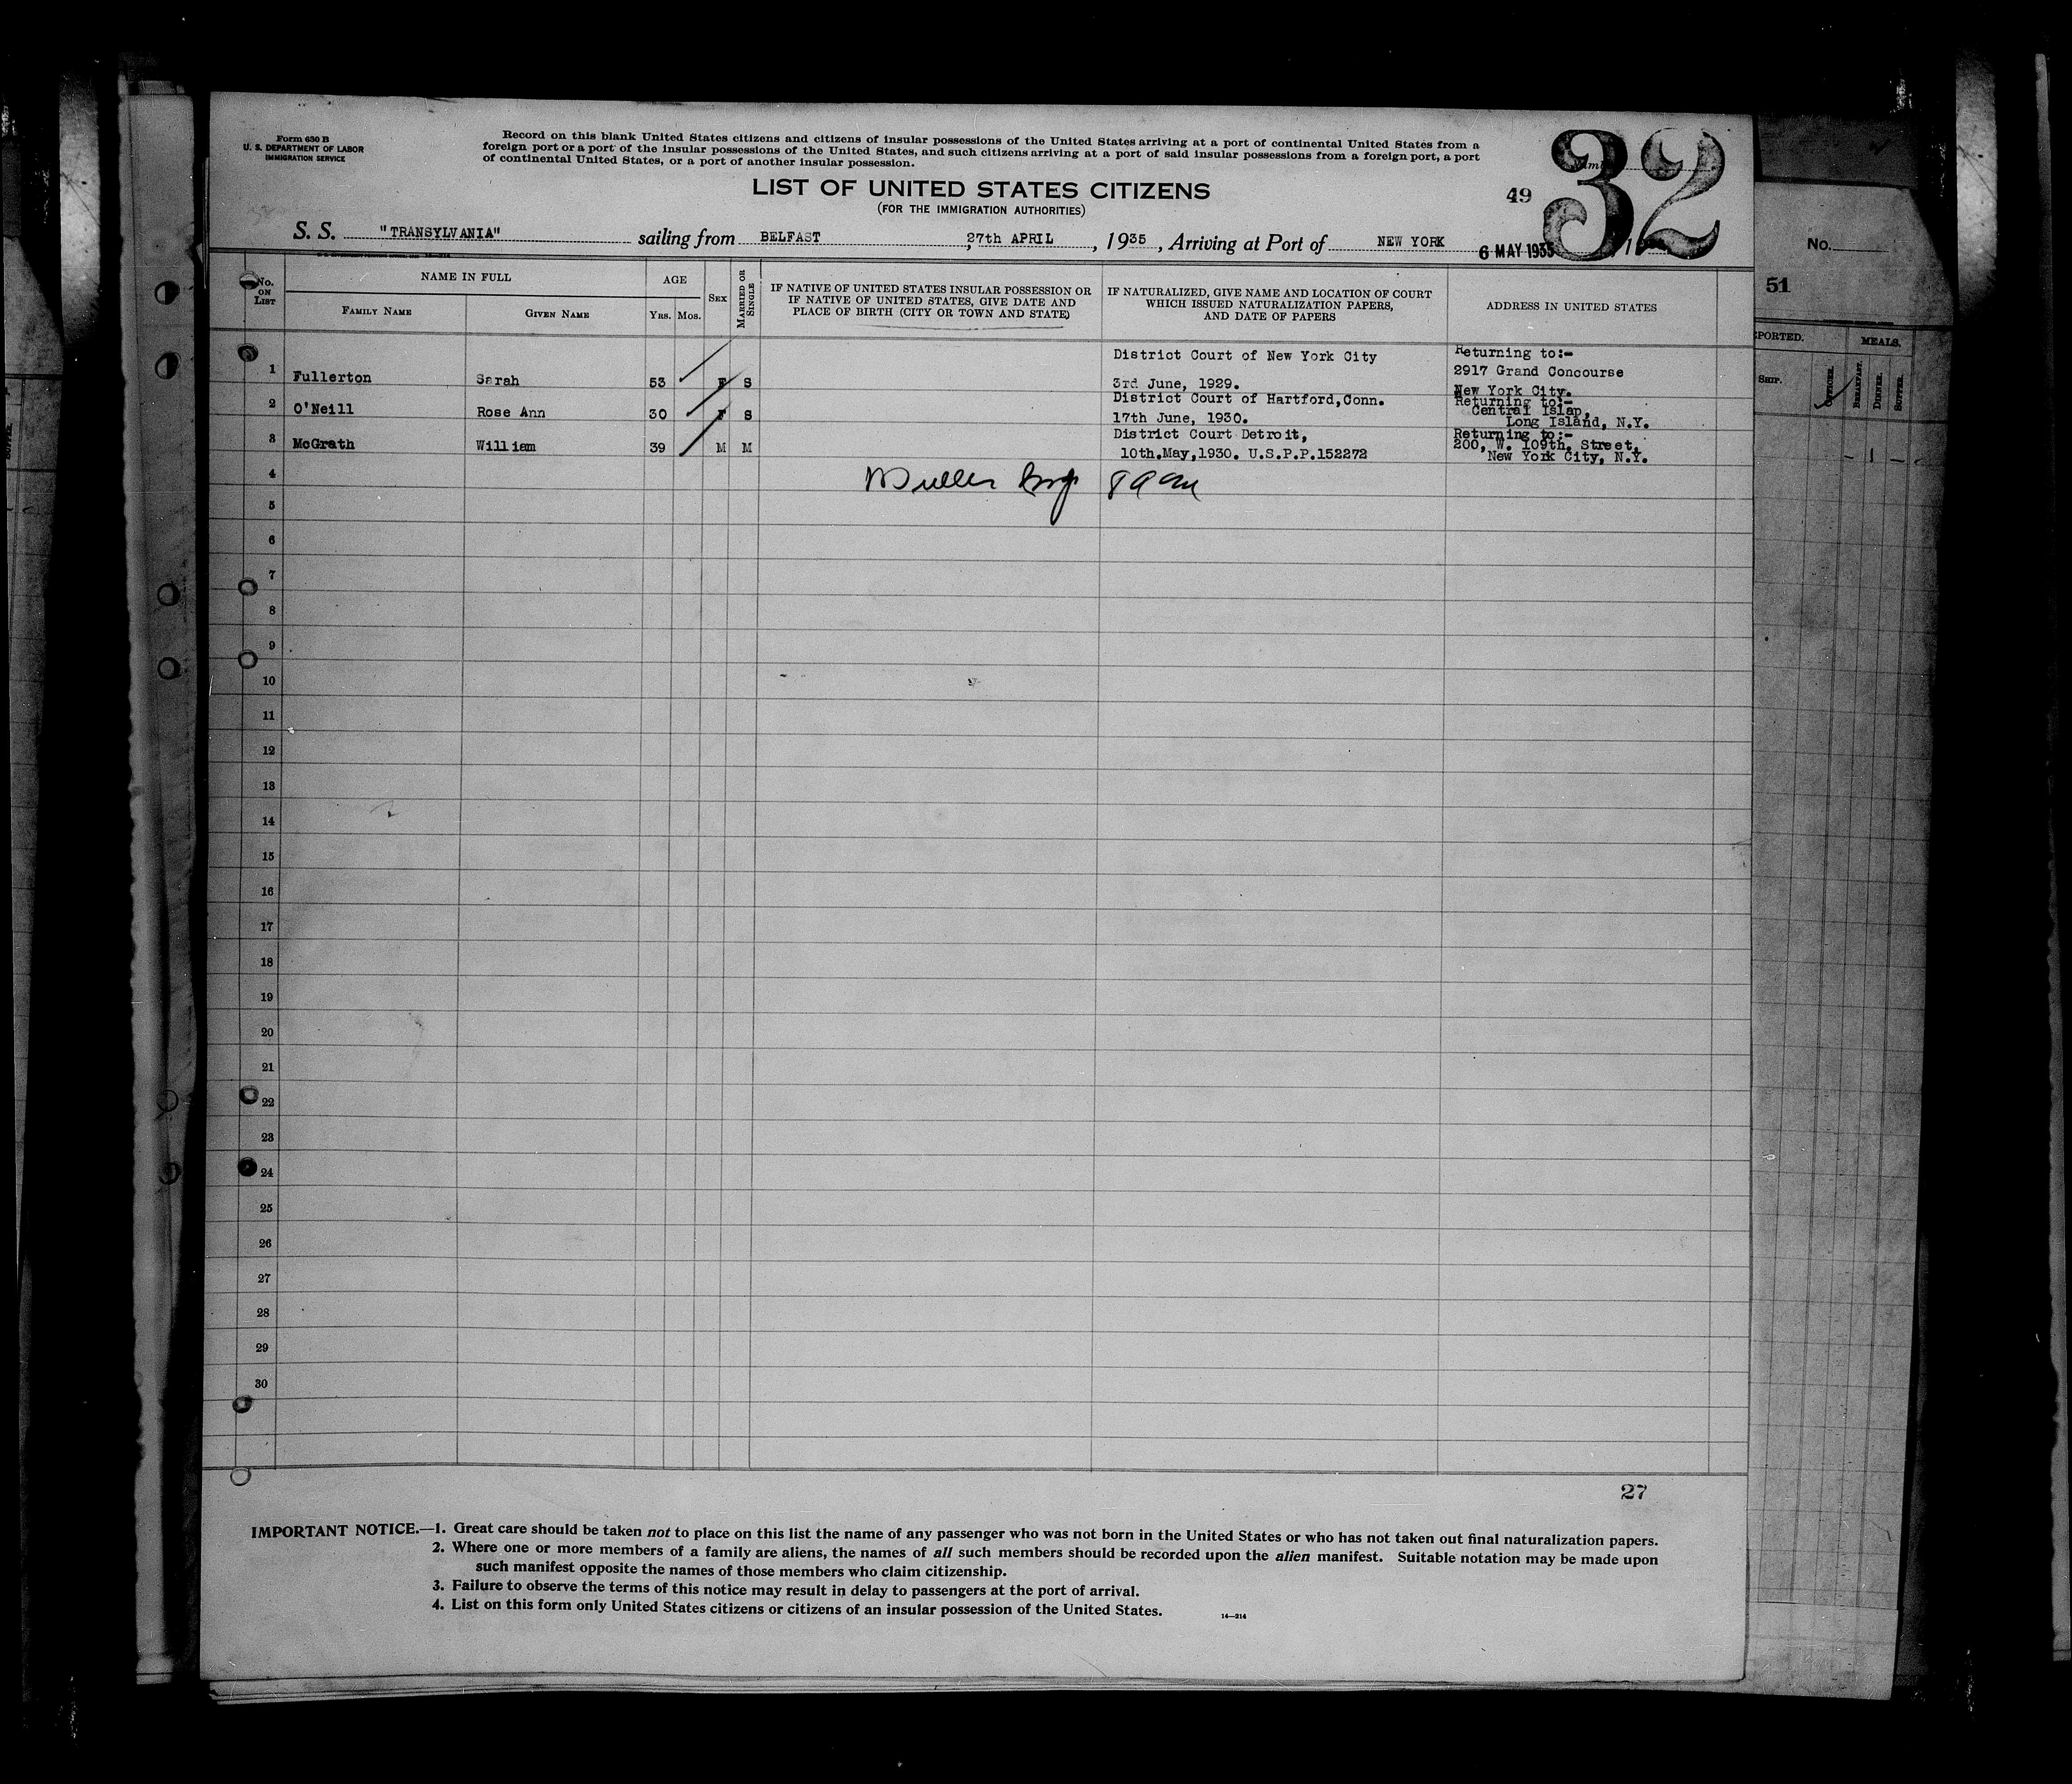 Form 630 B
U. S. DEPARTMENT OF LABOR
IMMIGRATION SERVICE
Record on this blank United States citizens and citizens of insular possessions of the United States arriving at a port of continental United States from a
foreign port or a port of the insular possessions of the United States, and such citizens arriving at a port of said insular possessions from a foreign port, a port
of continental United States, or a port of another insular possession.
32
LIST OF UNITED STATES CITIZENS
49
(FOR THE IMMIGRATION AUTHORITIES)
S. S. "TRANSYLVANIA" sailing from BELFAST, 27th APRIL, 1935, Arriving at Port of NEW YORK 6 MAY 1935
No.
51
No. ON LIST
NAME IN FULL
FAMILY NAME
GIVEN NAME
AGE
YRS.
MOS.
SEX
MARRIED OR SINGLE
IF NATIVE OF UNITED STATES INSULAR POSSESSION OR
IF NATIVE OF UNITED STATES, GIVE DATE AND
PLACE OF BIRTH (CITY OR TOWN AND STATE)
IF NATURALIZED, GIVE NAME AND LOCATION OF COURT
WHICH ISSUED NATURALIZATION PAPERS,
AND DATE OF PAPERS
ADDRESS IN UNITED STATES
PORTED.
MEALS.
SHIP.
OFFICER.
BREAKFAST.
DINNER.
SUPPER.
District Court of New York City
Returning to:-
2917 Grand Concourse
1 Fullerton Sarah 53 F S 3rd June, 1929.
New York City.
District Court of Hartford,Conn.
Returning to:-
2 O'Neill Rose Ann 30 F S 17th June, 1930.
Central Islap,
Long Island, N.Y.
District Court Detroit,
Returning to:-
3 McGrath William 39 M M 10th.May,1930. U.S.P.P.152272
200, W. 109th. Street,
New York City, N.Y.
4
5
6
7
8
9
10
11
12
13
14
15
16
17
18
19
20
21
22
23
24
25
26
27
28
29
30
27
IMPORTANT NOTICE.—1. Great care should be taken not to place on this list the name of any passenger who was not born in the United States or who has not taken out final naturalization papers.
2. Where one or more members of a family are aliens, the names of all such members should be recorded upon the alien manifest. Suitable notation may be made upon
such manifest opposite the names of those members who claim citizenship.
3. Failure to observe the terms of this notice may result in delay to passengers at the port of arrival.
4. List on this form only United States citizens or citizens of an insular possession of the United States.
14—214